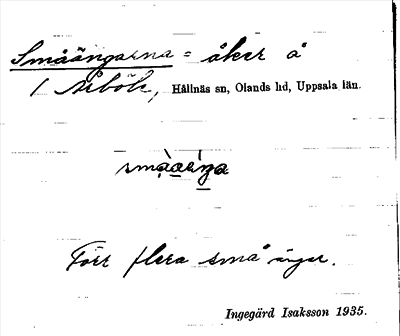 Småängarna = åker å
/ Årböle, Hållnäs sn, Olands hd, Uppsala län.
småäŋga
Förr flera små ängar.
Ingegärd Isaksson 1935.